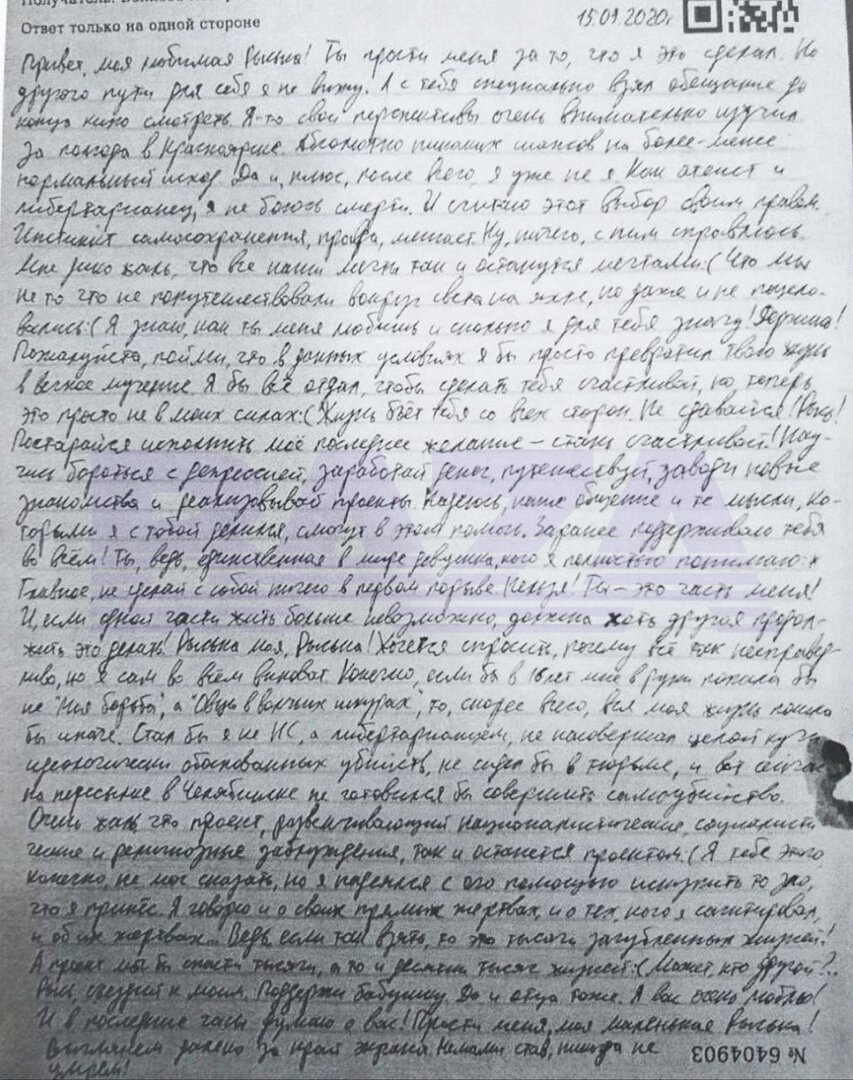 Ответ только на одной стороне
15.09.2020г
Привет, моя любимая Рыська! Ты прости меня за то, что я это сделал. Но
другого пути для себя я не вижу. А с тебя специально взял обещание до
конца кино смотреть. Я-то свои перспективы очень внимательно изучил
за полгода в Красноярске. Абсолютно никаких шансов на более-менее
нормальный исход. Да и, плюс, после всего, я уже не я. Как атеист и
либертарианец, я не боюсь смерти. И считаю этот выбор своим правом.
Инстинкт самосохранения, правда, мешает. Ну, ничего, с ним справлюсь.
Мне жаль, что все наши мечты так и останутся мечтами:( Что мы
не то что не попутешествовали вокруг света на яхте, но даже и не поцело-
вались:( Я знаю, как ты меня любишь и сколько я для тебя значу! Держись!
Пожалуйста, пойми, что в данных условиях я бы просто превратил твою жизнь
в вечное мучение. Я бы всё отдал, чтобы сделать тебя счастливой, но, теперь,
это просто не в моих силах:( Жизнь бьёт тебя со всех сторон. Не сдавайся! Рысь!
Постарайся исполнить моё последнее желание – стань счастливой! Нау-
чись бороться с депрессией, заработай денег, путешествуй, заводи новые
знакомства и реализовывай проекты. Надеюсь, наше общение и те мысли, ко-
торыми я с тобой делился, смогут в этом помочь. Заранее поддерживаю тебя
во всём! Ты, ведь, единственная в мире девушка, кого я полностью понимаю:*
Главное, не сделай с собой ничего в первом порыве. Нельзя! Ты – это часть меня!
И, если одной части жить больше невозможно, должна хоть другая продол-
жить это делать! Рыська моя, Рыська! Хочется спросить, почему всё так несправед-
ливо, но я сам во всём виноват. Конечно, если бы в 16 лет мне в руки попала бы
не "Моя борьба", а "Овцы в волчьих шкурах", то, скорее всего, вся моя жизнь пошла
бы иначе. Стал бы я не НС, а либертарианцем, не насовершал целой кучи
идеологически обоснованных убийств, не сидел бы в тюрьме, и вот сейчас
на пересылке в Челябинске не готовился бы совершить самоубийство.
Очень жаль, что проект, развенчивающий националистические, социалисти-
ческие и религиозные заблуждения, так и останется проектом:( Я тебе этого,
конечно, не мог сказать, но я надеялся с его помощью искупить то зло,
что я принёс. Я говорю и о своих прямых жертвах, и о тех, кого я сагитировал,
и об их жертвах... Ведь, если так взять, то это тысячи загубленных жизней!
А проект мог бы спасти тысячи, а то и десятки тысяч жизней:( Может, кто другой?..
Рысь, съезди к моим. Поддержи бабушку. Да и отца тоже. Я вас очень люблю!
И в последние часы думаю о вас! Прости меня, моя маленькая Рыська!
Выглянем далеко за край экрана. Нами став, никогда не
умрём!
№ 6404903